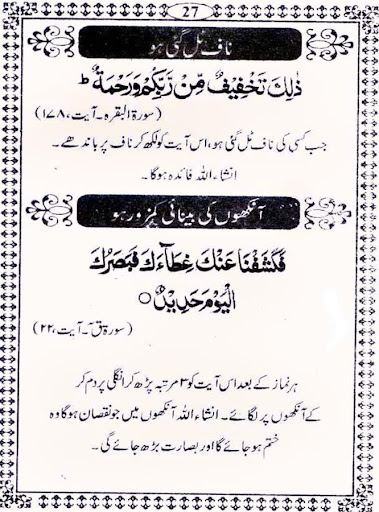 27
ناف ٹل گئی ہو
ذٰلِكَ تَخْفِيْفٌ مِّنْ رَّبِّكُمْ وَرَحْمَةٌ ؕ
(سورۃ البقرہ۔ آیت، ۱۷۸)
جب کسی کی ناف ٹل گئی ہو، اس آیت کو لکھ کر ناف پر باندھے۔
انشاء اللہ فائدہ ہوگا۔
آنکھوں کی بینائی کمزور ہو
فَكَشَفْنَا عَنْكَ غِطَآءَكَ فَبَصَرُكَ
الْيَوْمَ حَدِيْدٌ ○
(سورۃ ق ۔ آیت، ۲۲)
ہر نماز کے بعد اس آیت کو ۳ مرتبہ پڑھ کر انگلی پر دم کر
کے آنکھوں پر لگائے۔ انشاء اللہ آنکھوں میں جو نقصان ہوگا وہ
ختم ہو جائے گا اور بصارت بڑھ جائے گی۔